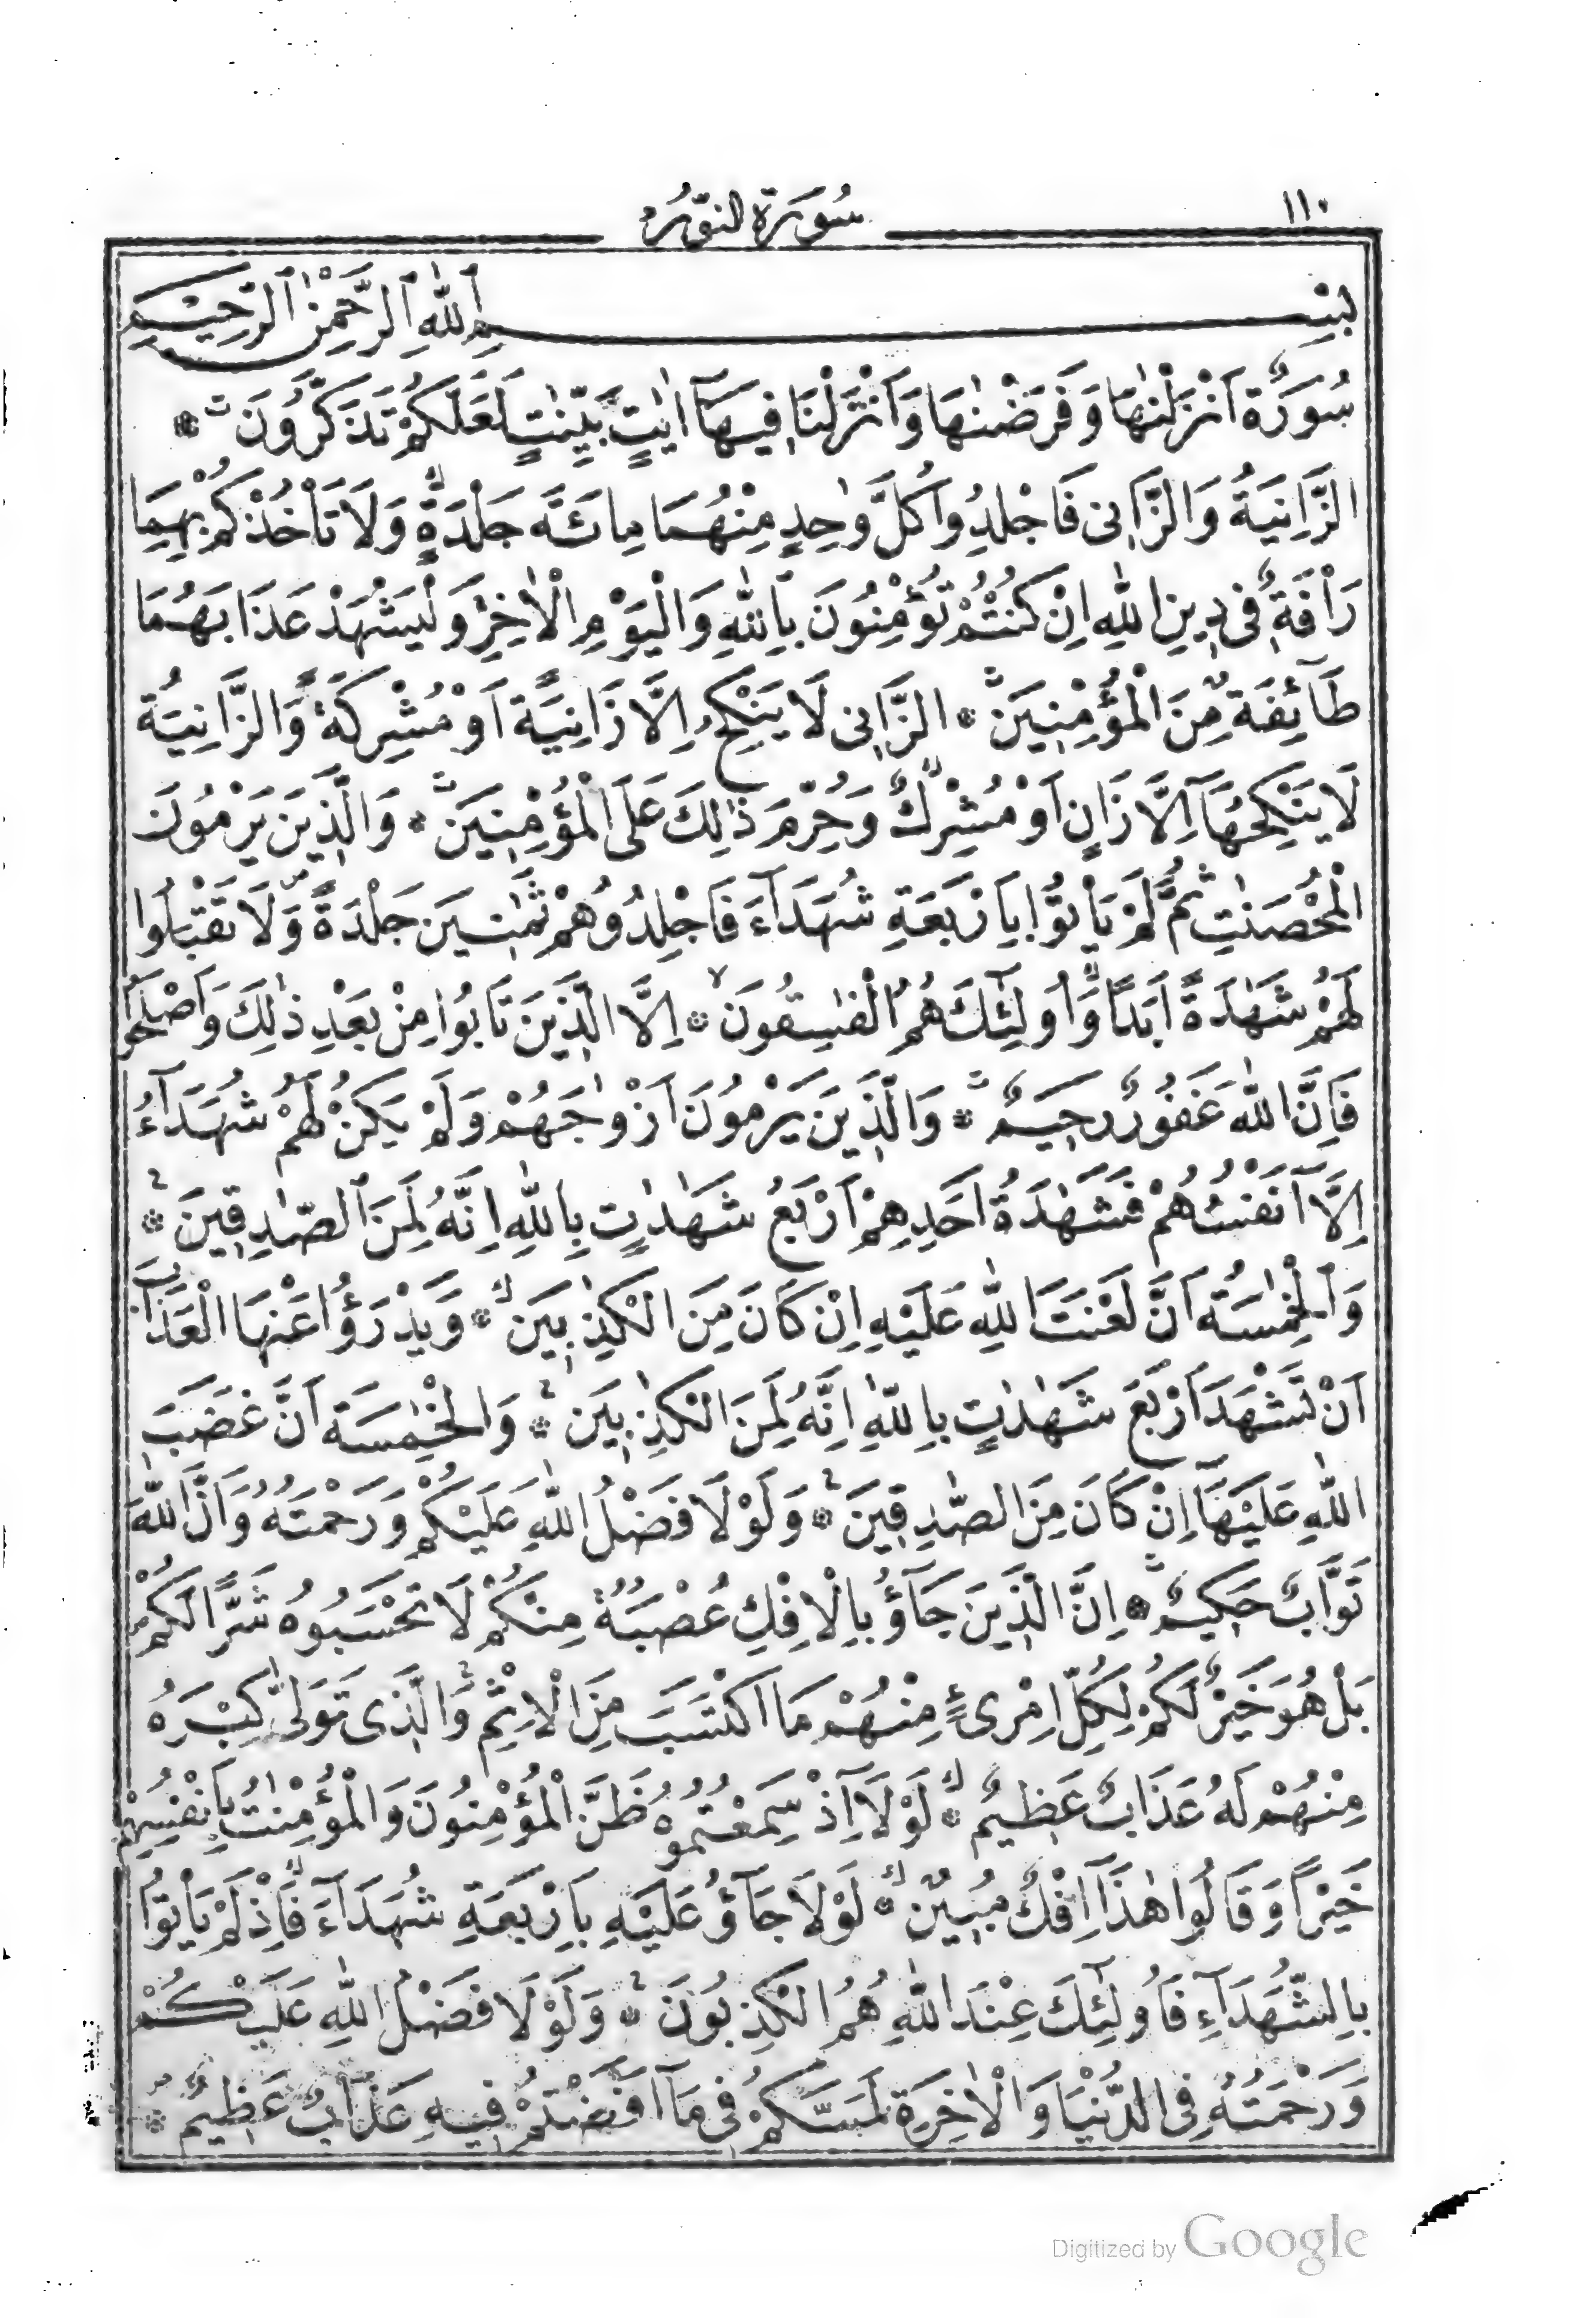 ١١٠
سُورَةُ النُّورُ
بِسْمِ اللّٰهِ الرَّحْمٰنِ الرَّحِيْمِ
سُورَةٌ اَنْزَلْنٰهَا وَفَرَضْنٰهَا وَاَنْزَلْنَا فِيهَآ اٰيٰتٍ بَيِّنٰتٍ لَعَلَّكُمْ تَذَكَّرُونَ
الزَّانِيَةُ وَالزَّانِى فَاجْلِدُوا كُلَّ وٰحِدٍ مِنْهُمَا مِائَةَ جَلْدَةٍ وَلَا تَاْخُذْكُمْ بِهِمَا
رَاْفَةٌ فِى دِينِ اللّٰهِ اِنْ كُنْتُمْ تُؤْمِنُونَ بِاللّٰهِ وَالْيَوْمِ الْاٰخِرِ وَلْيَشْهَدْ عَذَابَهُمَا
طَآئِفَةٌ مِنَ الْمُؤْمِنِينَ الزَّانِى لَا يَنْكِحُ اِلَّا زَانِيَةً اَوْ مُشْرِكَةً وَالزَّانِيَةُ
لَا يَنْكِحُهَآ اِلَّا زَانٍ اَوْ مُشْرِكٌ وَحُرِّمَ ذٰلِكَ عَلَى الْمُؤْمِنِينَ وَالَّذِينَ يَرْمُونَ
الْمُحْصَنٰتِ ثُمَّ لَمْ يَاْتُوْا بِاَرْبَعَةِ شُهَدَآءَ فَاجْلِدُوهُمْ ثَمٰنِينَ جَلْدَةً وَلَا تَقْبَلُوا
لَهُمْ شَهٰدَةً اَبَدًا وَاُولٰٓئِكَ هُمُ الْفٰسِقُونَ اِلَّا الَّذِينَ تَابُوا مِنْ بَعْدِ ذٰلِكَ وَاَصْلَحُوا
فَاِنَّ اللّٰهَ غَفُورٌ رَحِيمٌ وَالَّذِينَ يَرْمُونَ اَزْوٰجَهُمْ وَلَمْ يَكُنْ لَهُمْ شُهَدَآءُ
اِلَّآ اَنْفُسُهُمْ فَشَهٰدَةُ اَحَدِهِمْ اَرْبَعُ شَهٰدٰتٍ بِاللّٰهِ اِنَّهُ لَمِنَ الصّٰدِقِينَ
وَالْخٰمِسَةُ اَنَّ لَعْنَتَ اللّٰهِ عَلَيْهِ اِنْ كَانَ مِنَ الْكٰذِبِينَ وَيَدْرَؤُا عَنْهَا الْعَذَابَ
اَنْ تَشْهَدَ اَرْبَعَ شَهٰدٰتٍ بِاللّٰهِ اِنَّهُ لَمِنَ الْكٰذِبِينَ وَالْخٰمِسَةَ اَنَّ غَضَبَ
اللّٰهِ عَلَيْهَآ اِنْ كَانَ مِنَ الصّٰدِقِينَ وَلَوْلَا فَضْلُ اللّٰهِ عَلَيْكُمْ وَرَحْمَتُهُ وَاَنَّ اللّٰهَ
تَوَّابٌ حَكِيمٌ اِنَّ الَّذِينَ جَآؤُ بِالْاِفْكِ عُصْبَةٌ مِنْكُمْ لَا تَحْسَبُوهُ شَرًّا لَكُمْ
بَلْ هُوَ خَيْرٌ لَكُمْ لِكُلِّ امْرِئٍ مِنْهُمْ مَا اكْتَسَبَ مِنَ الْاِثْمِ وَالَّذِى تَوَلّٰى كِبْرَهُ
مِنْهُمْ لَهُ عَذَابٌ عَظِيمٌ لَوْلَآ اِذْ سَمِعْتُمُوهُ ظَنَّ الْمُؤْمِنُونَ وَالْمُؤْمِنٰتُ بِاَنْفُسِهِمْ
خَيْرًا وَقَالُوا هٰذَآ اِفْكٌ مُبِينٌ لَوْلَا جَآؤُ عَلَيْهِ بِاَرْبَعَةِ شُهَدَآءَ فَاِذْ لَمْ يَاْتُوا
بِالشُّهَدَآءِ فَاُولٰٓئِكَ عِنْدَ اللّٰهِ هُمُ الْكٰذِبُونَ وَلَوْلَا فَضْلُ اللّٰهِ عَلَيْكُمْ
وَرَحْمَتُهُ فِى الدُّنْيَا وَالْاٰخِرَةِ لَمَسَّكُمْ فِى مَآ اَفَضْتُمْ فِيهِ عَذَابٌ عَظِيمٌ
Digitized by Google